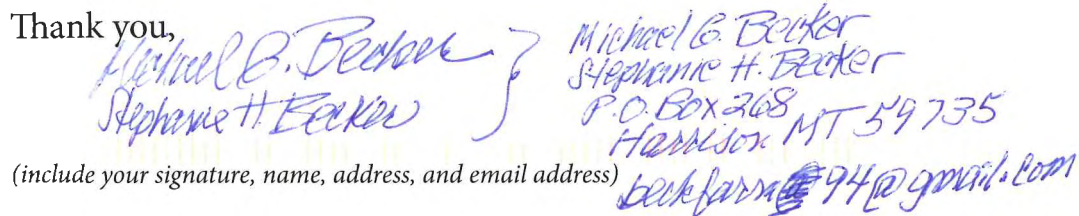 Thank you,
Michael G. Becker
Stephanie H. Becker
Michael G. Becker
Stephanie H. Becker
P.O. Box 268
Harrison MT 59735
(include your signature, name, address, and email address)
94@gmail.com